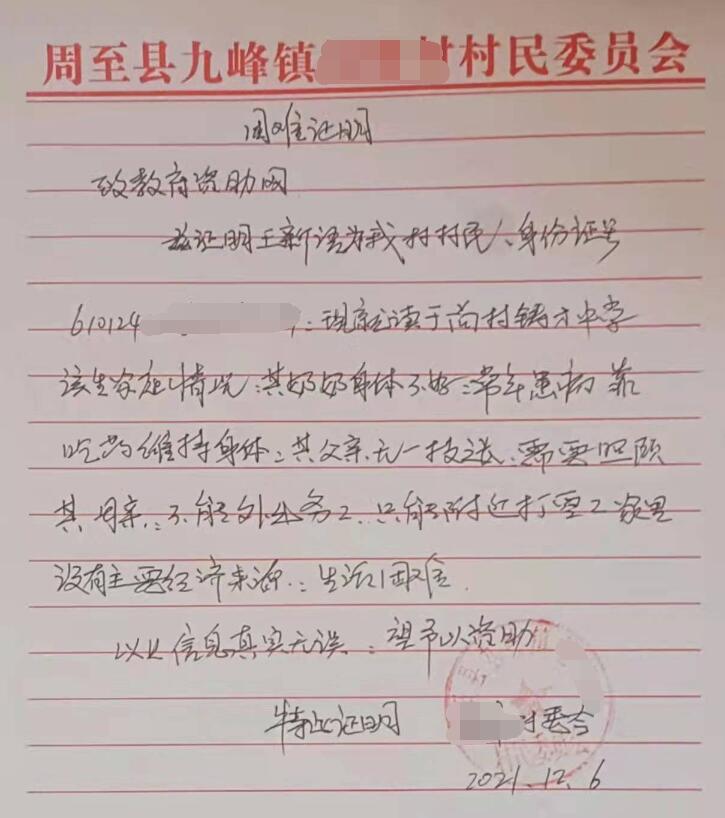 周至县九峰镇 村村民委员会
困难证明
致教育资助网
兹证明王新语为我村村民、身份证号
610124 ,:现就读于尚村铸才中学
该生家庭情况:其奶奶身体不好:常年患病 靠
吃药维持身体:其父亲无一技之长、需要照顾
其母亲:不能外出务工 只能附近打零工 家里
没有主要经济来源:生活困难.
以上信息真实无误:望予以资助
特此证明
村委会
2021.12.6